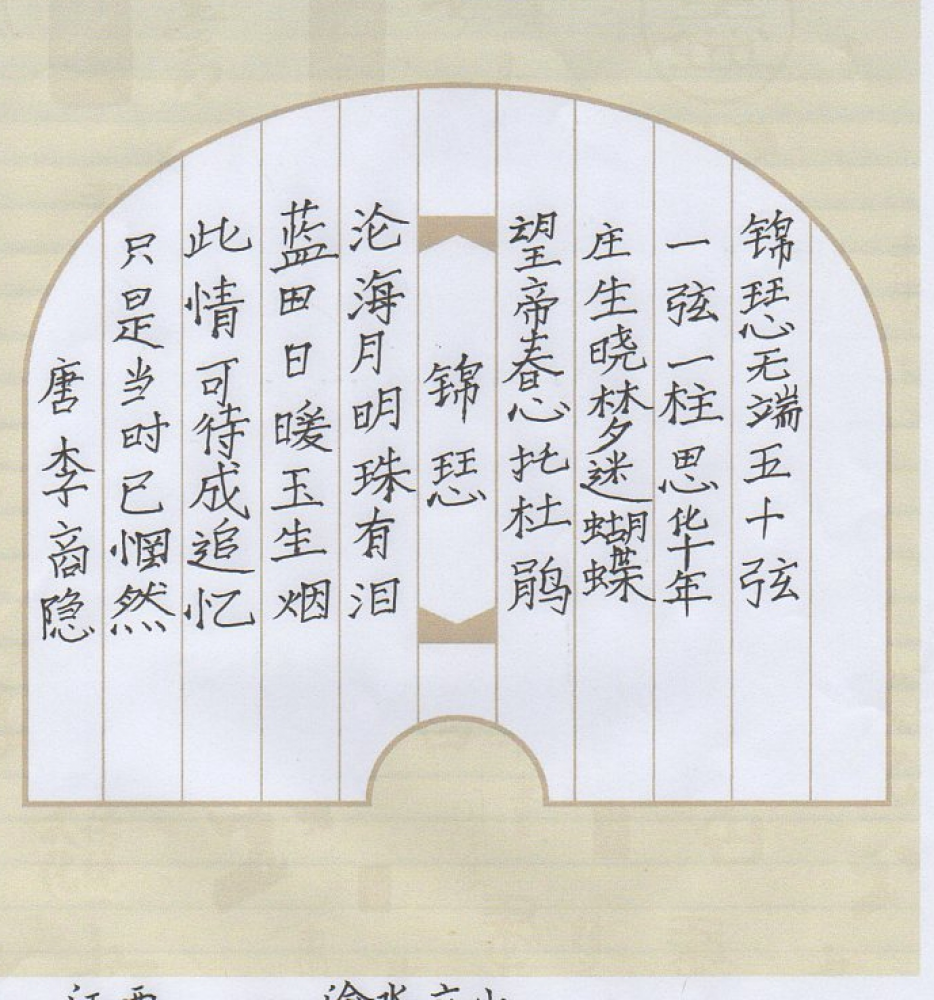 锦瑟无端五十弦
一弦一柱思华年
庄生晓梦迷蝴蝶
望帝春心托杜鹃
锦瑟
沦海月明珠有泪
蓝田日暖玉生烟
此情可待成追忆
只是当时已惘然
唐李商隐